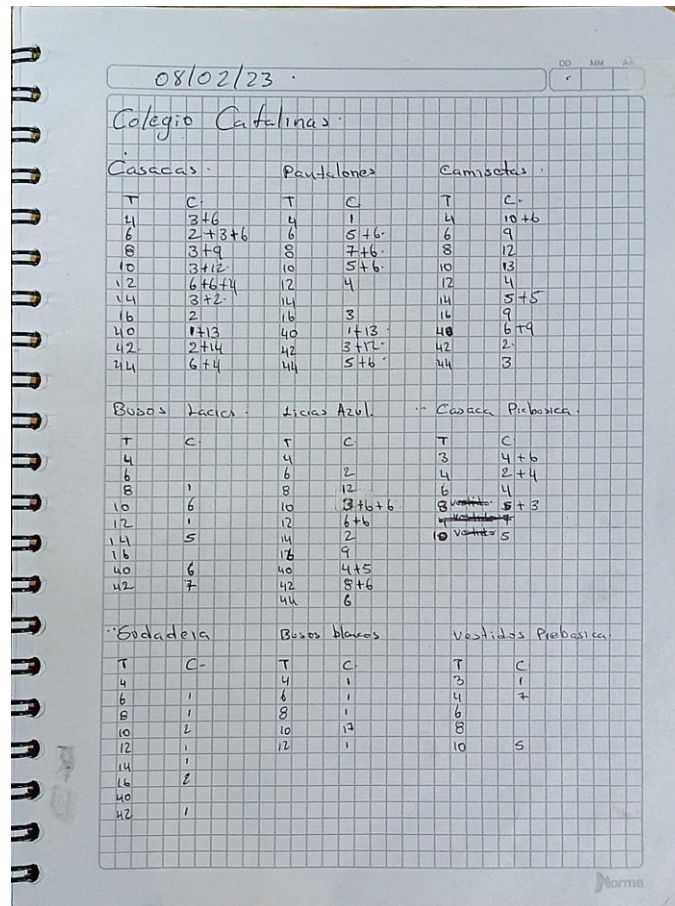 DD MM AA
08/02/23 .
Colegio Catalinas.
Casacas.
T C.
4 3+6
6 2+3+6
8 3+9
10 3+12.
12 6+6+4
14 3+2.
16 2
40 1+13
42. 2+14
44 6+4
Pantalones
T C
4 1
6 5+6.
8 7+6.
10 5+6.
12 4
14
16 3
40 1+13.
42 3+12.
44 5+6
Camisetas.
T C.
4 10+6
6 9
8 12
10 13
12 4
14 5+5
16 9
40 6+9
42 2.
44 3
Busos Lacics.
T C.
4
6
8 1
10 6
12 1
14 5
16
40 6
42 7
Licias Azul.
T C.
4
6 2
8 12
10 3+6+6
12 6+6
14 2
16 9
40 4+5
42 8+6
44 6
Casaca Prebasica.
T C
3 4+6
4 2+4
6 4
8 5+3
10 5
Sudadera
T C-
4
6 1
8 1
10 2
12 1
14 1
16 2
40
42 1
Busos blancos
T C
4 1
6 1
8 1
10 17
12 1
Vestidos Prebasica.
T C
3 1
4 7
6
8
10 5
Norma